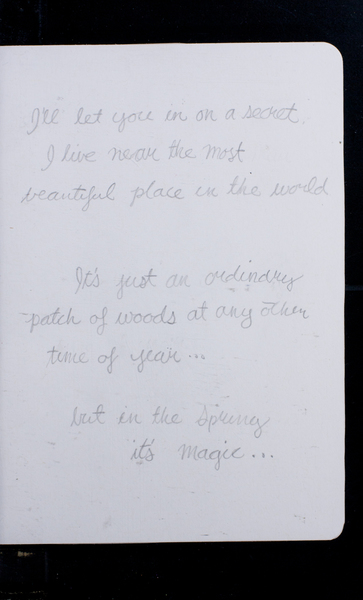 I'll let you in on a secret.
I live near the most
beautiful place in the world
It's just an ordinary
patch of woods at any other
time of year...
but in the Spring
it's magic...